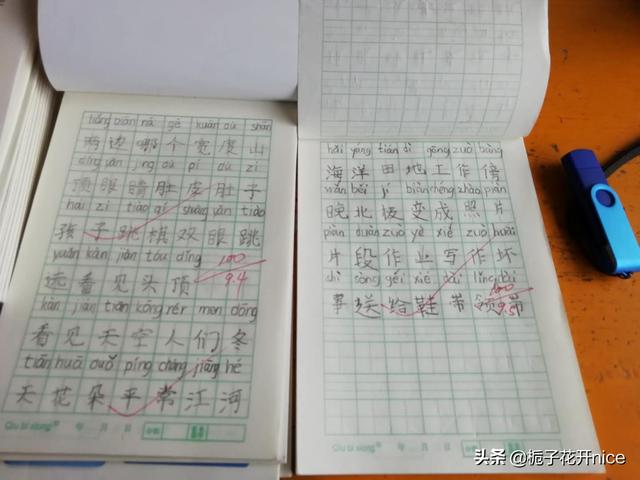 liǎng biān nǎ gè kuān dù shān
两边哪个宽度山
dǐng yǎn jīng dù pí dù zi
顶眼睛肚皮肚子
hái zi tiào qí shuāng yǎn tiào
孩子跳棋双眼跳
yuǎn kàn jiàn tóu dǐng
远看见头顶
100
9.4
kàn jiàn tiān kōng rén men dōng
看见天空人们冬
tiān huā duǒ píng cháng jiāng hé
天花朵平常江河
Qiu bi xiong
年 月 日
hǎi yáng tián dì gōng zuò bàng
海洋田地工作傍
wǎn běi jí biàn chéng zhào piàn
晚北极变成照片
piàn duàn zuò yè xiě zuò huài
片段作业写作坏
shì sòng gěi xié dài lǐng dài
事送给鞋带领带
100
9.5
Qiu bi xiong
年 月 日
头条 @栀子花开nice